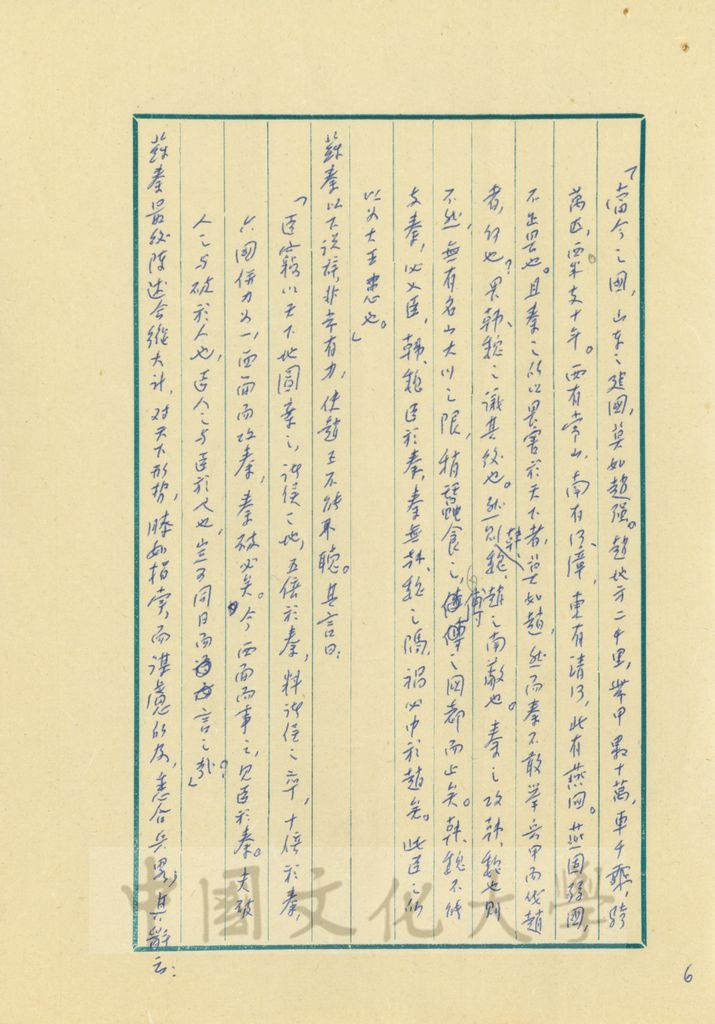 「當今之國，山東之建國，莫如趙強。趙地方二千里，帶甲數十萬，車千乘，騎
萬匹，粟支十年。西有常山，南有河、漳，東有清河，北有燕國。燕固弱國，
不足畏也。且秦之所以畏害於天下者，莫如趙，然而秦不敢舉兵甲而伐趙
者，何也？畏韓、魏之議其後也。然則韓、魏，趙之南蔽也。秦之攻韓、魏也則
不然，無有名山大川之限，稍蠶食之，傅之國都而止矣。韓、魏不能
支秦，必入臣，韓、魏臣於秦，秦無韓、魏之隔，禍必中於趙矣。此臣之所
以為大王患也。」
蘇秦以下說辭，非常有力，使趙王不能不聽。其言曰：
「臣竊以天下地圖案之，諸侯之地，五倍於秦，料諸侯之卒，十倍於秦，
六國併力為一，西面而攻秦，秦破必矣。今西面而事之，見臣於秦。夫破
人之與破於人也，臣人之與臣於人也，豈可同日而言之哉？」
蘇秦最後陳述合縱大計，對天下形勢，瞭如指掌，而謀慮所及，悉合兵略，其辭云：
6
中國文化大學